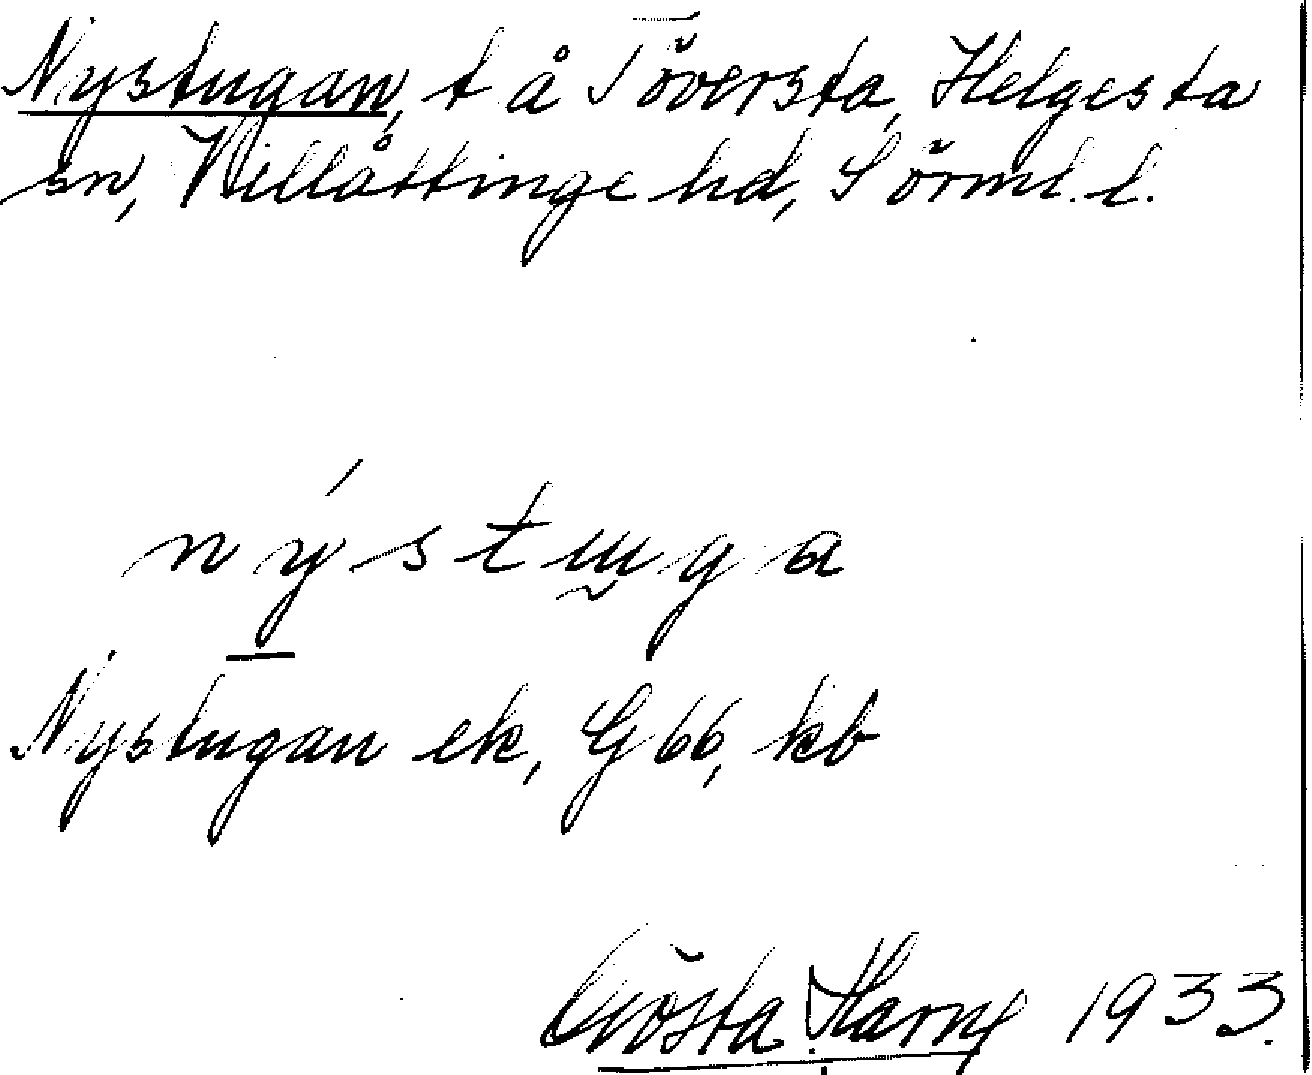 Nystugan, t å Töversta, Helgesta
sn, Villåttinge hd, Sörml. l.
nýstuga
Nystugan ek, G 66, kb
Gösta Harnf 1933.